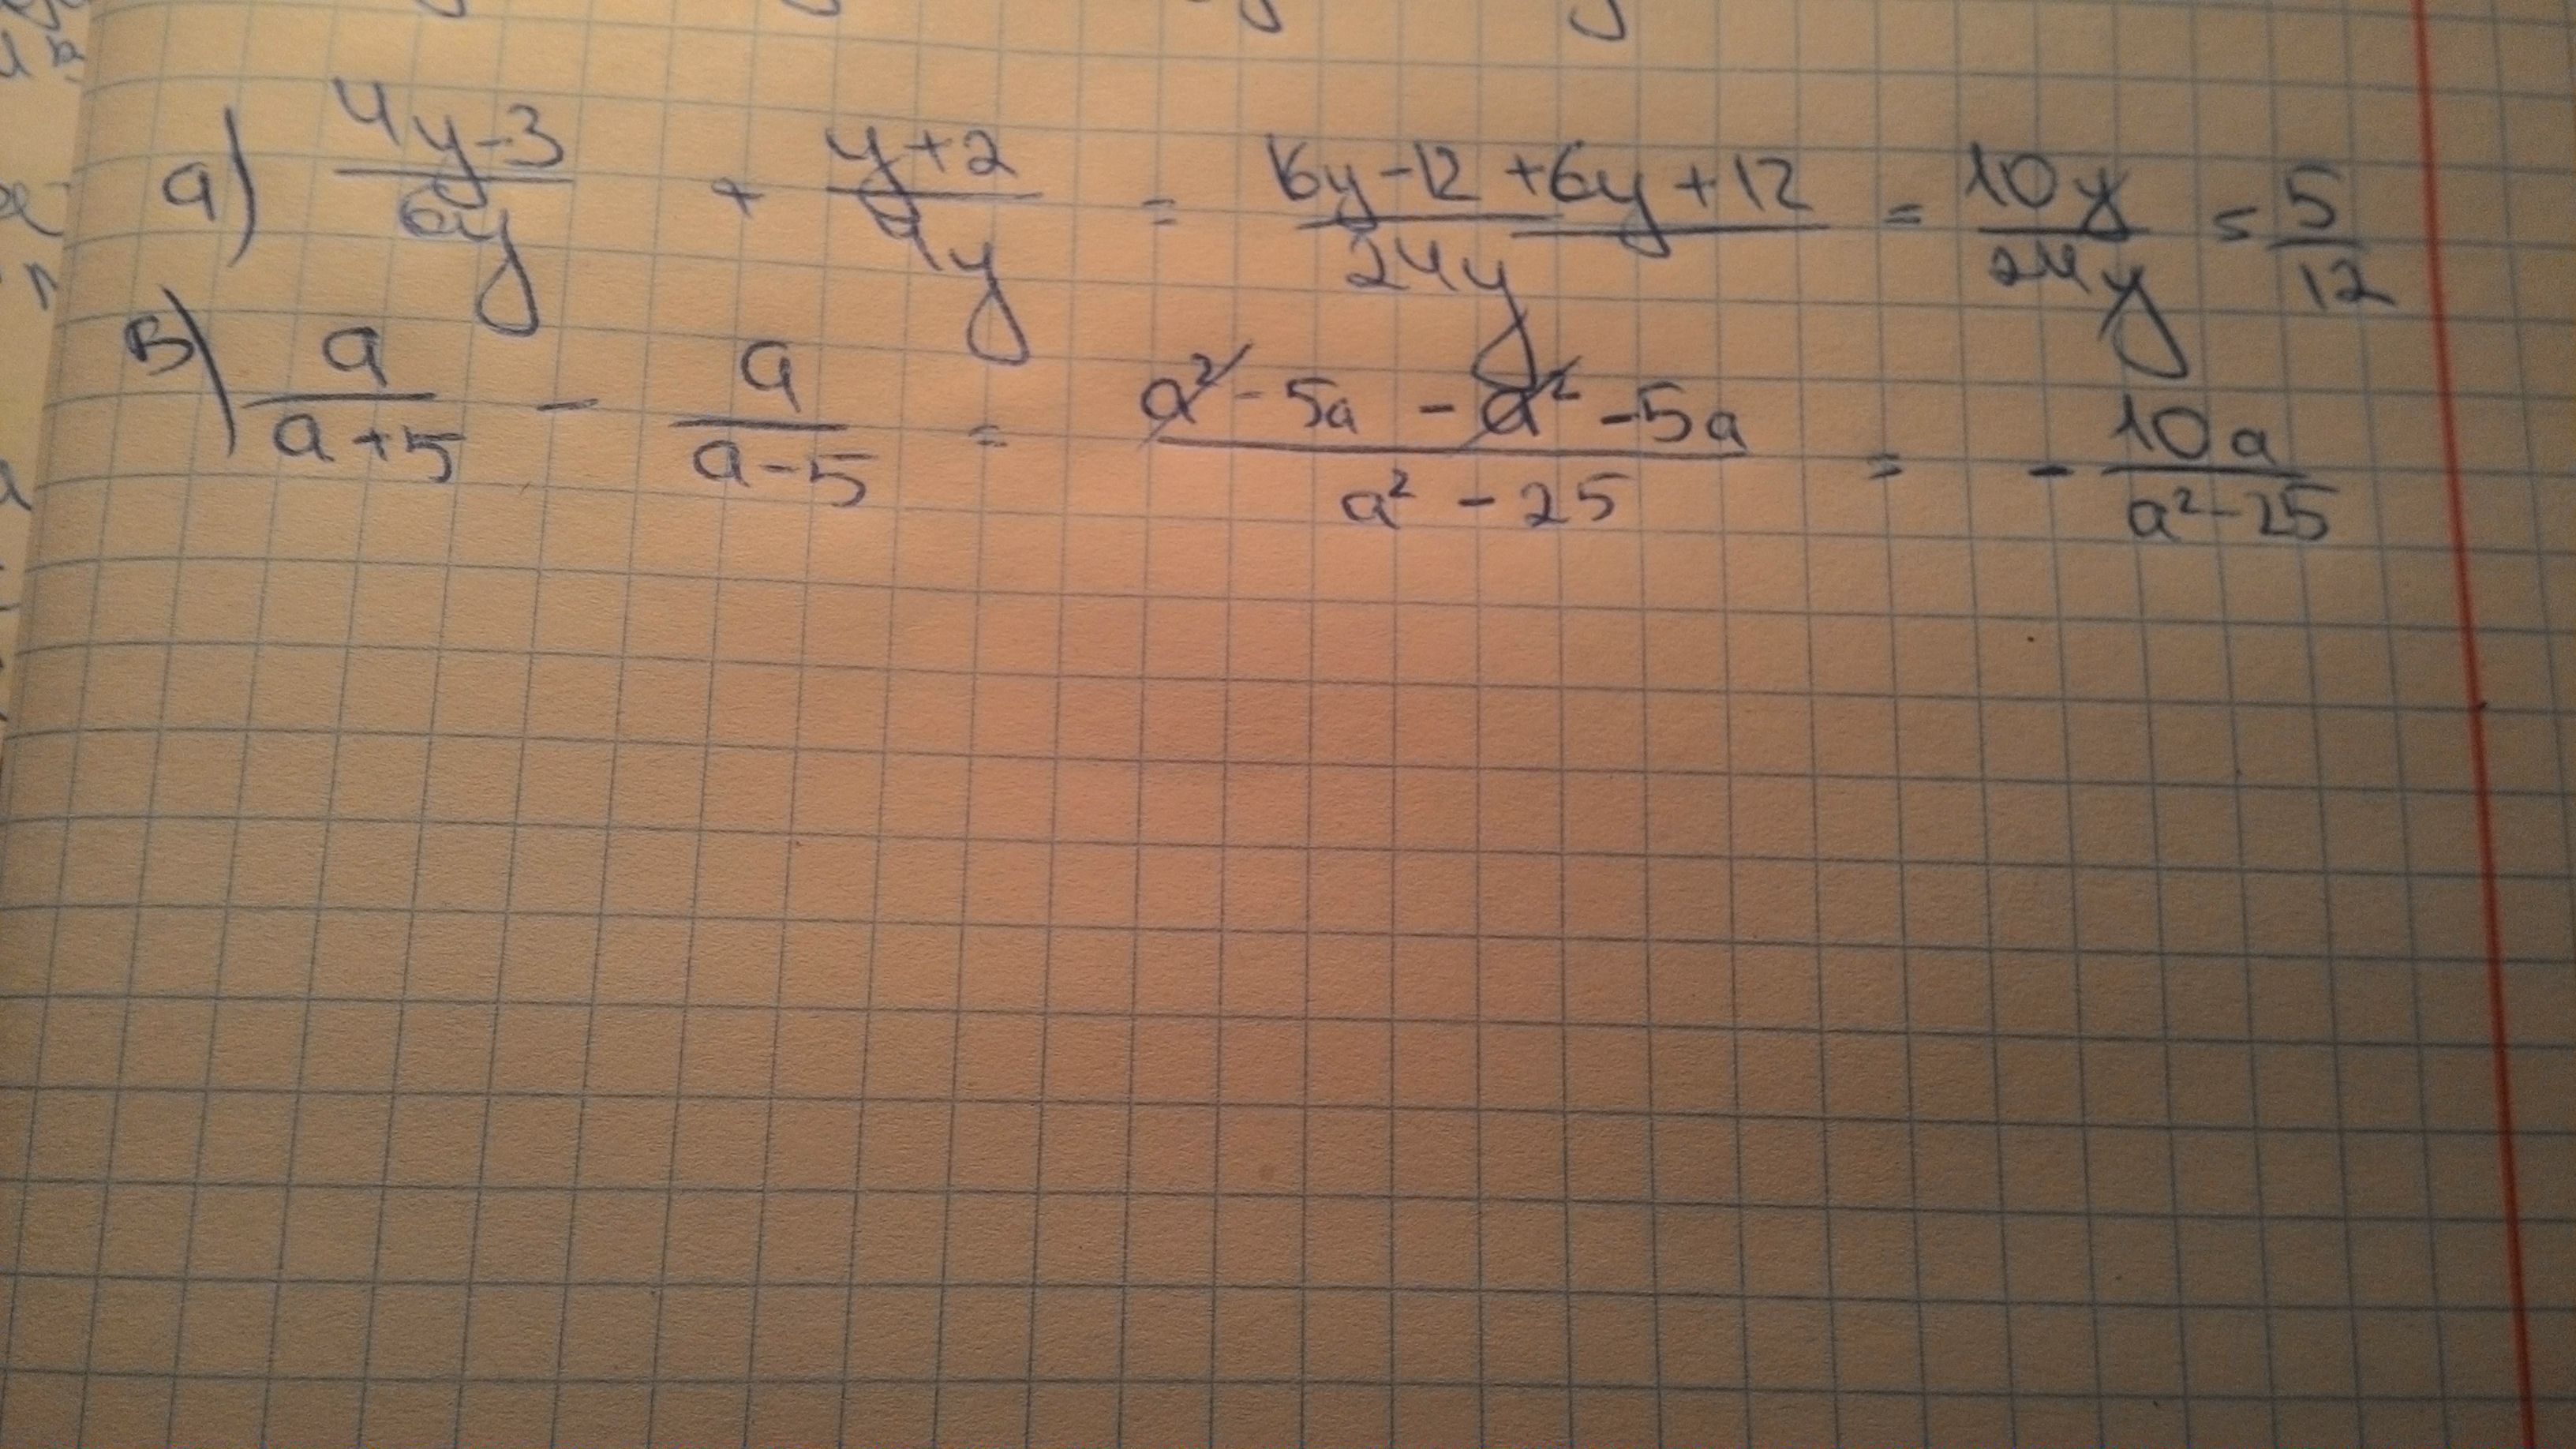 а) (4y-3)/(6y) + (y+2)/(4y) = (16y-12+6y+12)/(24y) = (10y)/(24y) = 5/12
в) a/(a+5) - a/(a-5) = (a²-5a-a²-5a)/(a²-25) = -(10a)/(a²-25)